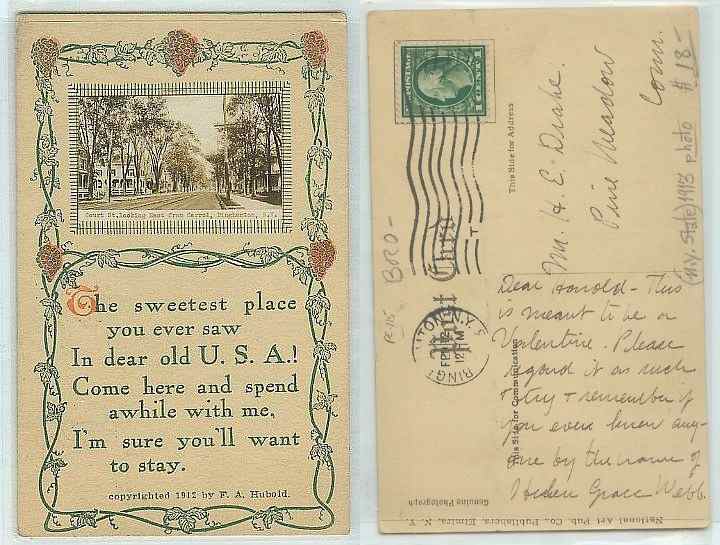 Court St. looking East from Carrol, Binghamton, N.Y.
The sweetest place
you ever saw
In dear old U. S. A.!
Come here and spend
awhile with me,
I'm sure you'll want
to stay.
copyrighted 1912 by F. A. Hubold.
POSTAGE
1 CENT 1
N.Y.
FEB 12
12 PM
Post Card
This Side for Address
Mr. H. E. Drake.
Pine Meadow
Conn.
# 18-
(ny. State) 1913 photo
BORO-
R-115
This Side for Communication
Dear Harold - This
is meant to be a
Valentine. Please
regard it as such
& try & remember if
you ever knew any-
one by the name of
Helen Grace Webb.
Genuine Photograph
National Art Pub. Co., Publishers, Elmira, N. Y.